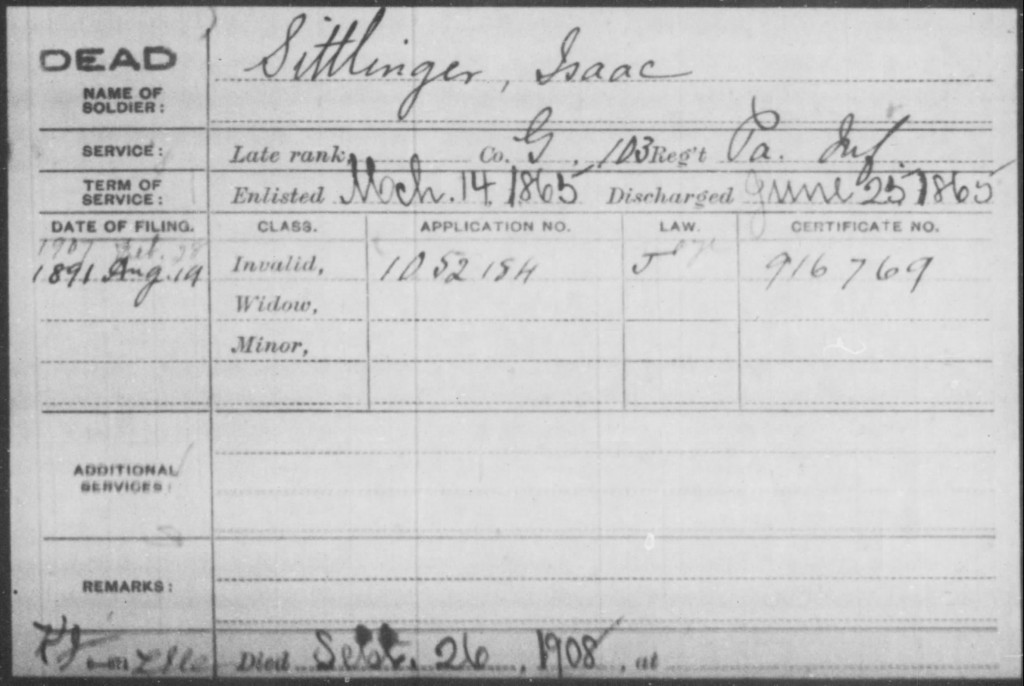 DEAD
Sittlinger, Isaac
NAME OF
SOLDIER:
SERVICE: Late rank, Co. G, 103 Reg't Pa. Inf.
TERM OF
SERVICE: Enlisted Mch. 14 1865 Discharged June 25 1865
DATE OF FILING. CLASS. APPLICATION NO. LAW. CERTIFICATE NO.
1907 Feb. 28
1891 Aug. 19 Invalid, 1052154 J 916769
Widow,
Minor,
ADDITIONAL
SERVICES:
REMARKS:
Died Sept. 26, 1908, at